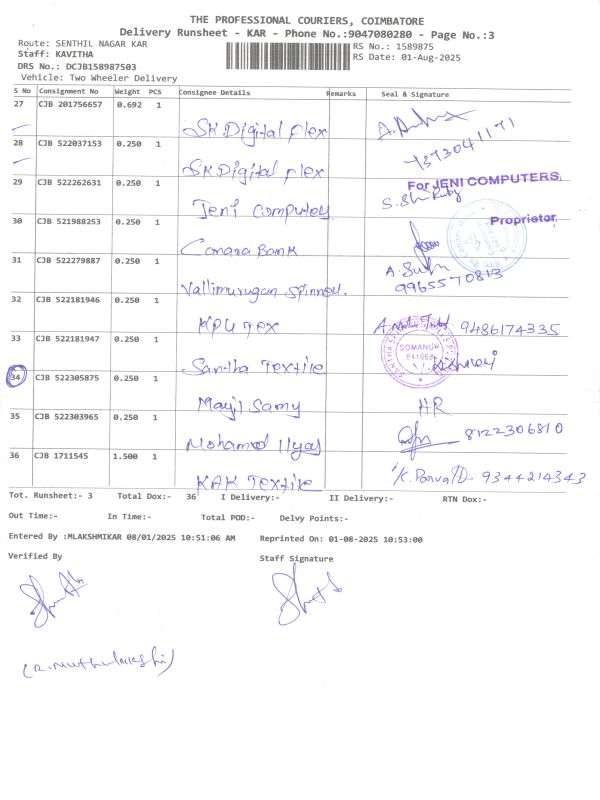 THE PROFESSIONAL COURIERS, COIMBATORE
Delivery Runsheet - KAR - Phone No.:9047080280 - Page No.:3
Route: SENTHIL NAGAR KAR
RS No.: 1589875
Staff: KAVITHA
RS Date: 01-Aug-2025
DRS No.: DCJB158987503
Vehicle: Two Wheeler Delivery
S No Consignment No Weight PCS Consignee Details Remarks Seal & Signature
27 CJB 201756657 0.692 1
SK.Digital flex
28 CJB 522037153 0.250 1
SK.Digital flex
7373041171
29 CJB 522262631 0.250 1
Jeni Computer
For JENI COMPUTERS
Proprietor
30 CJB 521988253 0.250 1
Canara Bank
31 CJB 522279887 0.250 1
Vallimurugan Spinner.
9965570813
32 CJB 522181946 0.250 1
KPU Tex
9486174335
33 CJB 522181947 0.250 1
Santha Textile
SOMANUR
641668
34 CJB 522305875 0.250 1
Mayil Samy
HR
35 CJB 522303965 0.250 1
Mohamed Ilyas
8122306810
36 CJB 1711545 1.500 1
KAK Textile
9344214343
Tot. Runsheet:- 3 Total Dox:- 36 I Delivery:- II Delivery:- RTN Dox:-
Out Time:- In Time:- Total POD:- Delvy Points:-
Entered By :MLAKSHMIKAR 08/01/2025 10:51:06 AM Reprinted On: 01-08-2025 10:53:00
Verified By Staff Signature
(R.Muthulakshi)